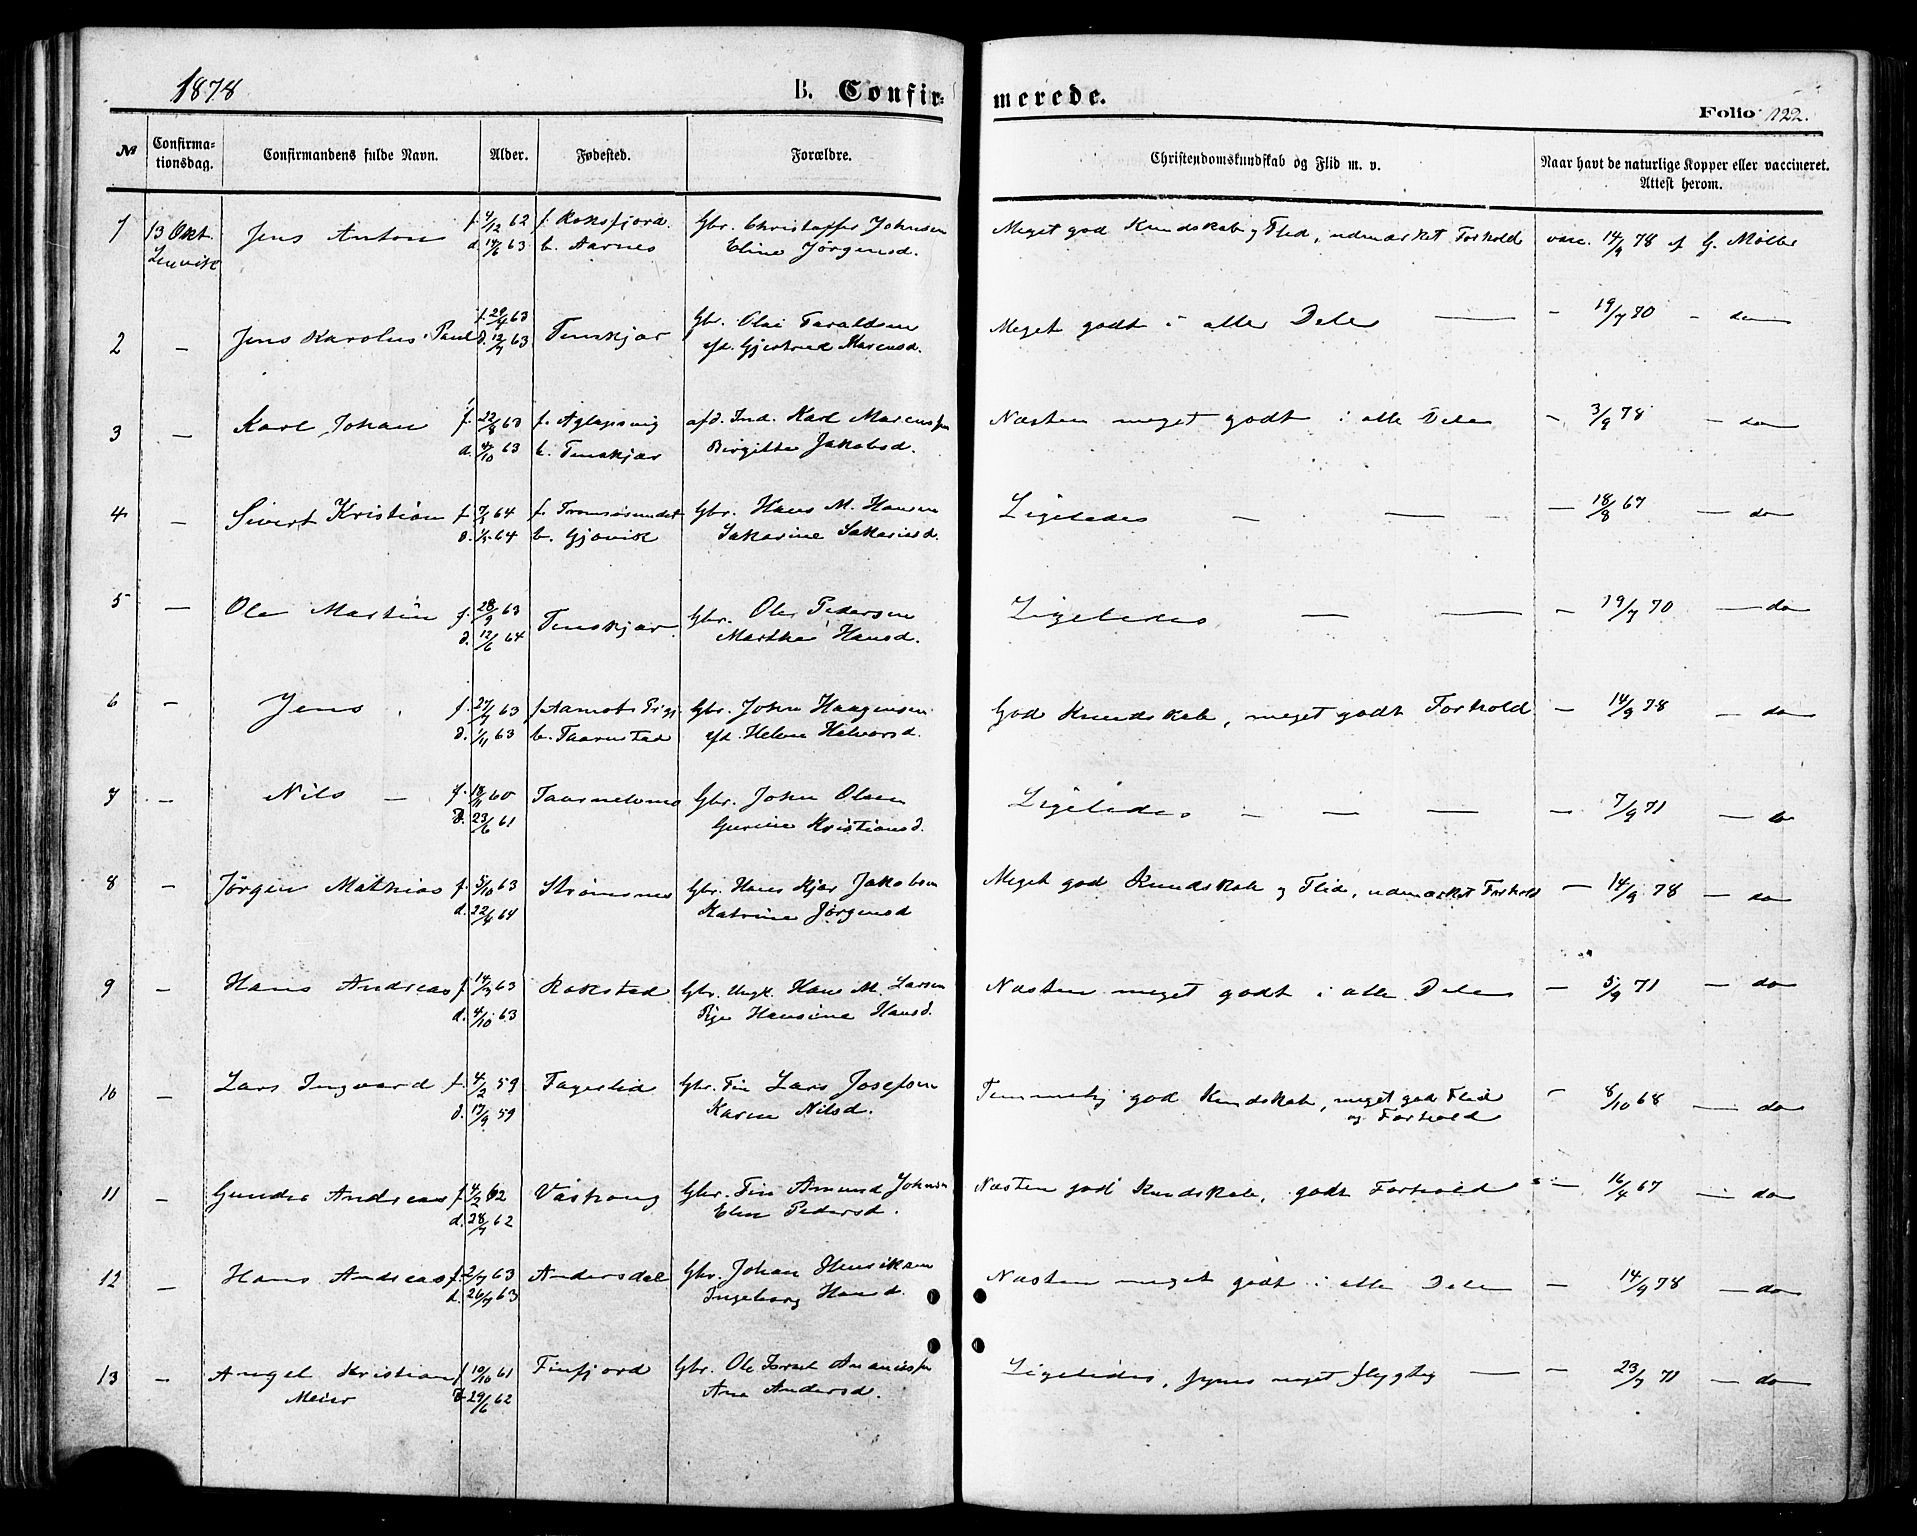 1878
B. Confir-
merede.
Folio 122.
№
Confirma-
tionsdag.
Confirmandens fulde Navn.
Alder.
Fødested.
Forældre.
Christendomskundskab og Flid m. v.
Naar havt de naturlige Kopper eller vaccineret.
Attest herom.
1 13 Okt. Jens Anton f. 4/12 62 f. Roksfjord Gbr. Christoffer Johnsen Meget god Kundskab og Flid, udmærket Forhold vacc. 14/9 78 af G. Møller
Lenvik d. 14/6 63 b. Aarnes Eline Jörgensd.
2 — Jens Karolus Paul f. 29/4 63 Tennskjær Gbr. Olai Taraldsen Meget godt i alle Dele — - 19/7 70 - do
d. 12/7 63 Gjertrud Marensd.
3 — Karl Johan f. 22/8 63 f. Aglapsvig afd. Ind. Karl Marensen Næsten meget godt i alle Dele - 3/9 78 — do
d. 4/10 63 b. Tennskjær Birgitte Jakobsd.
4 — Sivert Kristian f. 64 f. Tromsösundet Gbr. Hans M. Hansen Ligeledes — — - — 18/8 67 — do
d. 64 b. Gjøvik Sakarine Sakariasd.
5 — Ole Martin f. 28/9 63 Tennskjær Gbr. Ole Pedersen Ligeledes — — - 19/7 70 — do
d. 12/6 64 Marthe Hansd.
6 — Jens f. 27/7 63 Gbr. John Haagensen God Kundskab, meget godt Forhold — 14/9 78 — do
d. 1/11 63 b. Taarnstad Helene Halvorsd.
7 — Nils — f. 18/11 60 Gbr. John Olsen Ligeledes — — — — 7/9 71 — do
d. 23/6 61 Gurine Kristiansd.
8 — Jörgen Mathias f. 5/10 63 Strömsnes Gbr. Hans Kjær Jakobsen Meget god Kundskab og Flid, udmærket Forhold — 14/9 78 — do
d. 22/4 64 Katrine Jörgensd
9 — Hans Andreas f. 14/7 63 Rokstad Gbr. Ungk. Hans M. Larsen Næsten meget godt i alle Dele — 5/9 71 — do
d. 4/10 63 Pige Hansine Hansd.
10 — Lars Ingvard f. 4/2 59 Fagerlid Gbr. Fin Lars Josefsen Temmelig god Kundskab, meget god Flid - 8/10 68 — do
d. 17/9 59 Karen Nilsd. og Forhold
11 — Andreas f. 4/2 62 Vaskang Gbr. Fin Amund Johnsen Næsten god Kundskab, godt Forhold — 16/4 67 — do
d. 28/7 62 Elen Pedersd.
12 — Hans Andreas f. 2/7 63 Andersdal Gbr. Johan Henriksen Næsten meget godt i alle Dele — 14/9 78 — do
d. 26/7 63 Ingeborg Hansd.
13 — Angel Kristian f. 10/10 61 Finfjord Gbr. Ole Ananiassen Ligeledes, synes meget flygtig — — 23/7 71 — do
Meier d. 29/6 62 Ane Andersd.